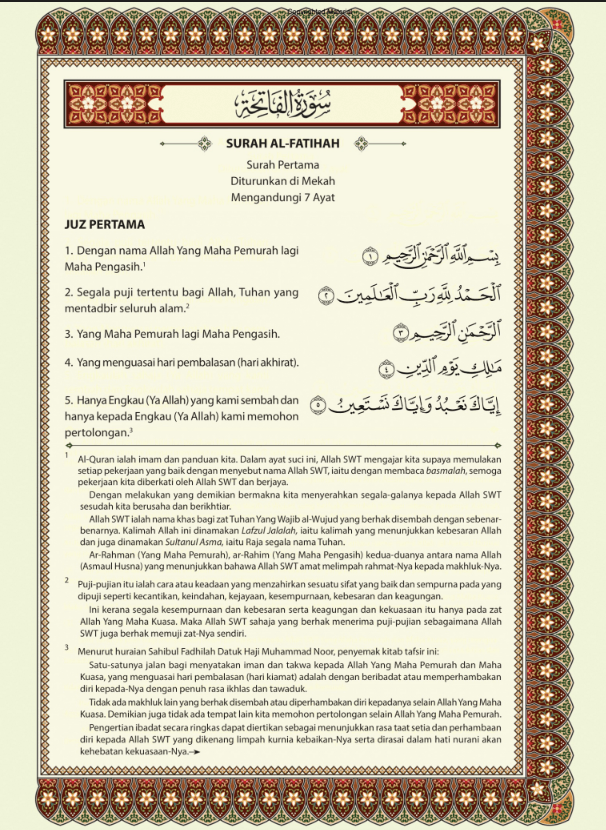 Copyrighted Material
سُورَةُ الفَاتِحَة
SURAH AL-FATIHAH
Surah Pertama
Diturunkan di Mekah
Mengandungi 7 Ayat
JUZ PERTAMA
1. Dengan nama Allah Yang Maha Pemurah lagi
Maha Pengasih.¹
بِسْمِ اللَّهِ الرَّحْمَٰنِ الرَّحِيمِ ١
2. Segala puji tertentu bagi Allah, Tuhan yang
mentadbir seluruh alam.²
الْحَمْدُ لِلَّهِ رَبِّ الْعَالَمِينَ ٢
3. Yang Maha Pemurah lagi Maha Pengasih.
الرَّحْمَٰنِ الرَّحِيمِ ٣
4. Yang menguasai hari pembalasan (hari akhirat).
مَالِكِ يَوْمِ الدِّينِ ٤
5. Hanya Engkau (Ya Allah) yang kami sembah dan
hanya kepada Engkau (Ya Allah) kami memohon
pertolongan.³
إِيَّاكَ نَعْبُدُ وَإِيَّاكَ نَسْتَعِينُ ٥
1 Al-Quran ialah imam dan panduan kita. Dalam ayat suci ini, Allah SWT mengajar kita supaya memulakan
setiap pekerjaan yang baik dengan menyebut nama Allah SWT, iaitu dengan membaca basmalah, semoga
pekerjaan kita diberkati oleh Allah SWT dan berjaya.
Dengan melakukan yang demikian bermakna kita menyerahkan segala-galanya kepada Allah SWT
sesudah kita berusaha dan berikhtiar.
Allah SWT ialah nama khas bagi zat Tuhan Yang Wajib al-Wujud yang berhak disembah dengan sebenar-
benarnya. Kalimah Allah ini dinamakan Lafzul Jalalah, iaitu kalimah yang menunjukkan kebesaran Allah
dan juga dinamakan Sultanul Asma, iaitu Raja segala nama Tuhan.
Ar-Rahman (Yang Maha Pemurah), ar-Rahim (Yang Maha Pengasih) kedua-duanya antara nama Allah
(Asmaul Husna) yang menunjukkan bahawa Allah SWT amat melimpah rahmat-Nya kepada makhluk-Nya.
2 Puji-pujian itu ialah cara atau keadaan yang menzahirkan sesuatu sifat yang baik dan sempurna pada yang
dipuji seperti kecantikan, keindahan, kejayaan, kesempurnaan, kebesaran dan keagungan.
Ini kerana segala kesempurnaan dan kebesaran serta keagungan dan kekuasaan itu hanya pada zat
Allah Yang Maha Kuasa. Maka Allah SWT sahaja yang berhak menerima puji-pujian sebagaimana Allah
SWT juga berhak memuji zat-Nya sendiri.
3 Menurut huraian Sahibul Fadhilah Datuk Haji Muhammad Noor, penyemak kitab tafsir ini:
Satu-satunya jalan bagi menyatakan iman dan takwa kepada Allah Yang Maha Pemurah dan Maha
Kuasa, yang menguasai hari pembalasan (hari kiamat) adalah dengan beribadat atau memperhambakan
diri kepada-Nya dengan penuh rasa ikhlas dan tawaduk.
Tidak ada makhluk lain yang berhak disembah atau diperhambakan diri kepadanya selain Allah Yang Maha
Kuasa. Demikian juga tidak ada tempat lain kita memohon pertolongan selain Allah Yang Maha Pemurah.
Pengertian ibadat secara ringkas dapat diertikan sebagai menunjukkan rasa taat setia dan perhambaan
diri kepada Allah SWT yang dikenang limpah kurnia kebaikan-Nya serta dirasai dalam hati nurani akan
kehebatan kekuasaan-Nya.